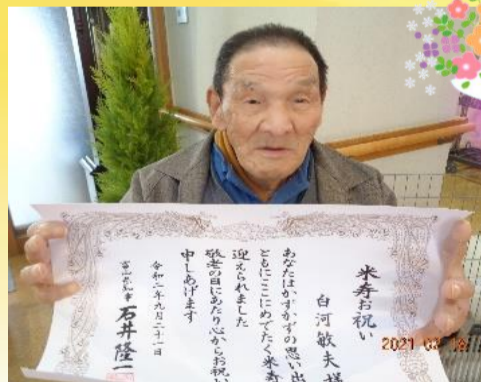 米寿お祝い
白河敏夫様
あなたはかずかずの思い出
ともにここにめでたく米寿
迎えられました
敬老の日にあたり心からお祝い
申しあげます
令和二年九月二十一日
富山県知事 石井隆一